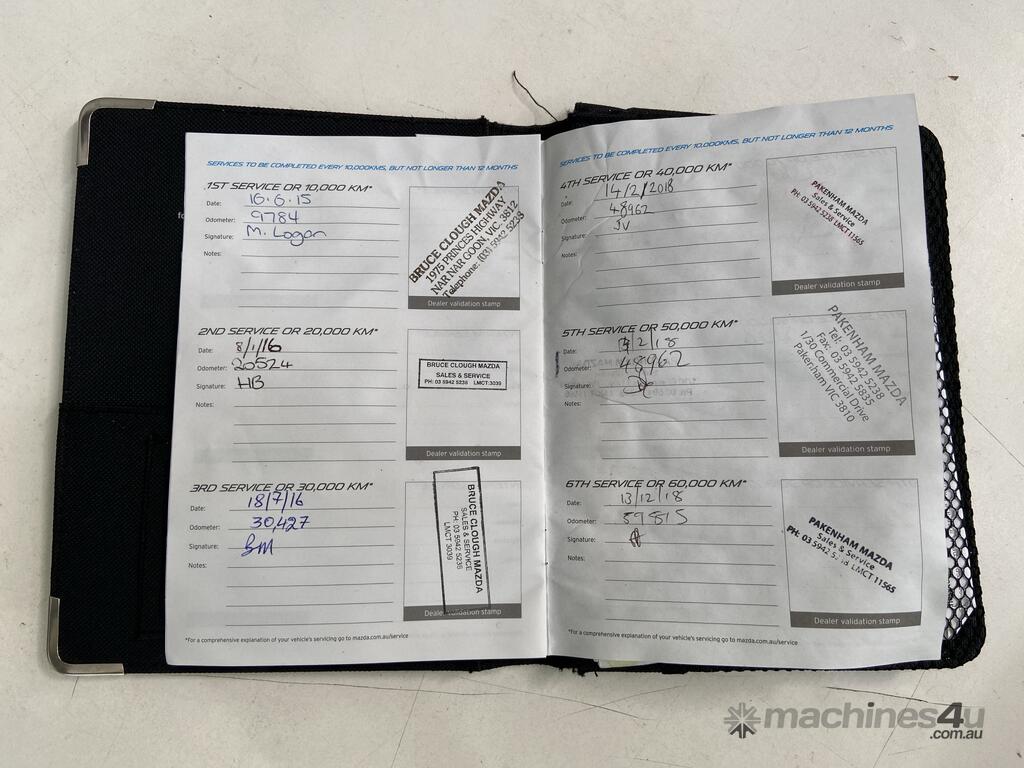 SERVICES TO BE COMPLETED EVERY 10,000KMS, BUT NOT LONGER THAN 12 MONTHS
1ST SERVICE OR 10,000 KM*
Date: 16.6.15
Odometer: 9784
Signature: M. Logan
Notes:
BRUCE CLOUGH MAZDA
1975 PRINCES HIGHWAY
NAR NAR GOON, VIC. 3812
Telephone: (03) 5942 5238
Dealer validation stamp
2ND SERVICE OR 20,000 KM*
Date: 8/1/16
Odometer: 20524
Signature: HB
Notes:
BRUCE CLOUGH MAZDA
SALES & SERVICE
PH: 03 5942 5238 LMCT:3039
Dealer validation stamp
3RD SERVICE OR 30,000 KM*
Date: 18/7/16
Odometer: 30,427
Signature: BM
Notes:
BRUCE CLOUGH MAZDA
SALES & SERVICE
PH: 03 5942 5238
LMCT 3039
Dealer validation stamp
*For a comprehensive explanation of your vehicle's servicing go to mazda.com.au/service
SERVICES TO BE COMPLETED EVERY 10,000KMS, BUT NOT LONGER THAN 12 MONTHS
4TH SERVICE OR 40,000 KM*
Date: 14/2/2018
Odometer: 48962
Signature: JV
Notes:
PAKENHAM MAZDA
Sales & Service
PH: 03 5942 5238 LMCT 11565
Dealer validation stamp
5TH SERVICE OR 50,000 KM*
Date: /2/18
Odometer: 48962
Signature:
Notes:
PAKENHAM MAZDA
Tel: 03 5942 5238
Fax: 03 5942 5835
1/30 Commercial Drive
Pakenham VIC 3810
Dealer validation stamp
6TH SERVICE OR 60,000 KM*
Date: 13/12/18
Odometer: 59815
Signature:
Notes:
PAKENHAM MAZDA
Sales & Service
PH: 03 5942 5238 LMCT 11565
Dealer validation stamp
*For a comprehensive explanation of your vehicle's servicing go to mazda.com.au/service
machines4u
.com.au